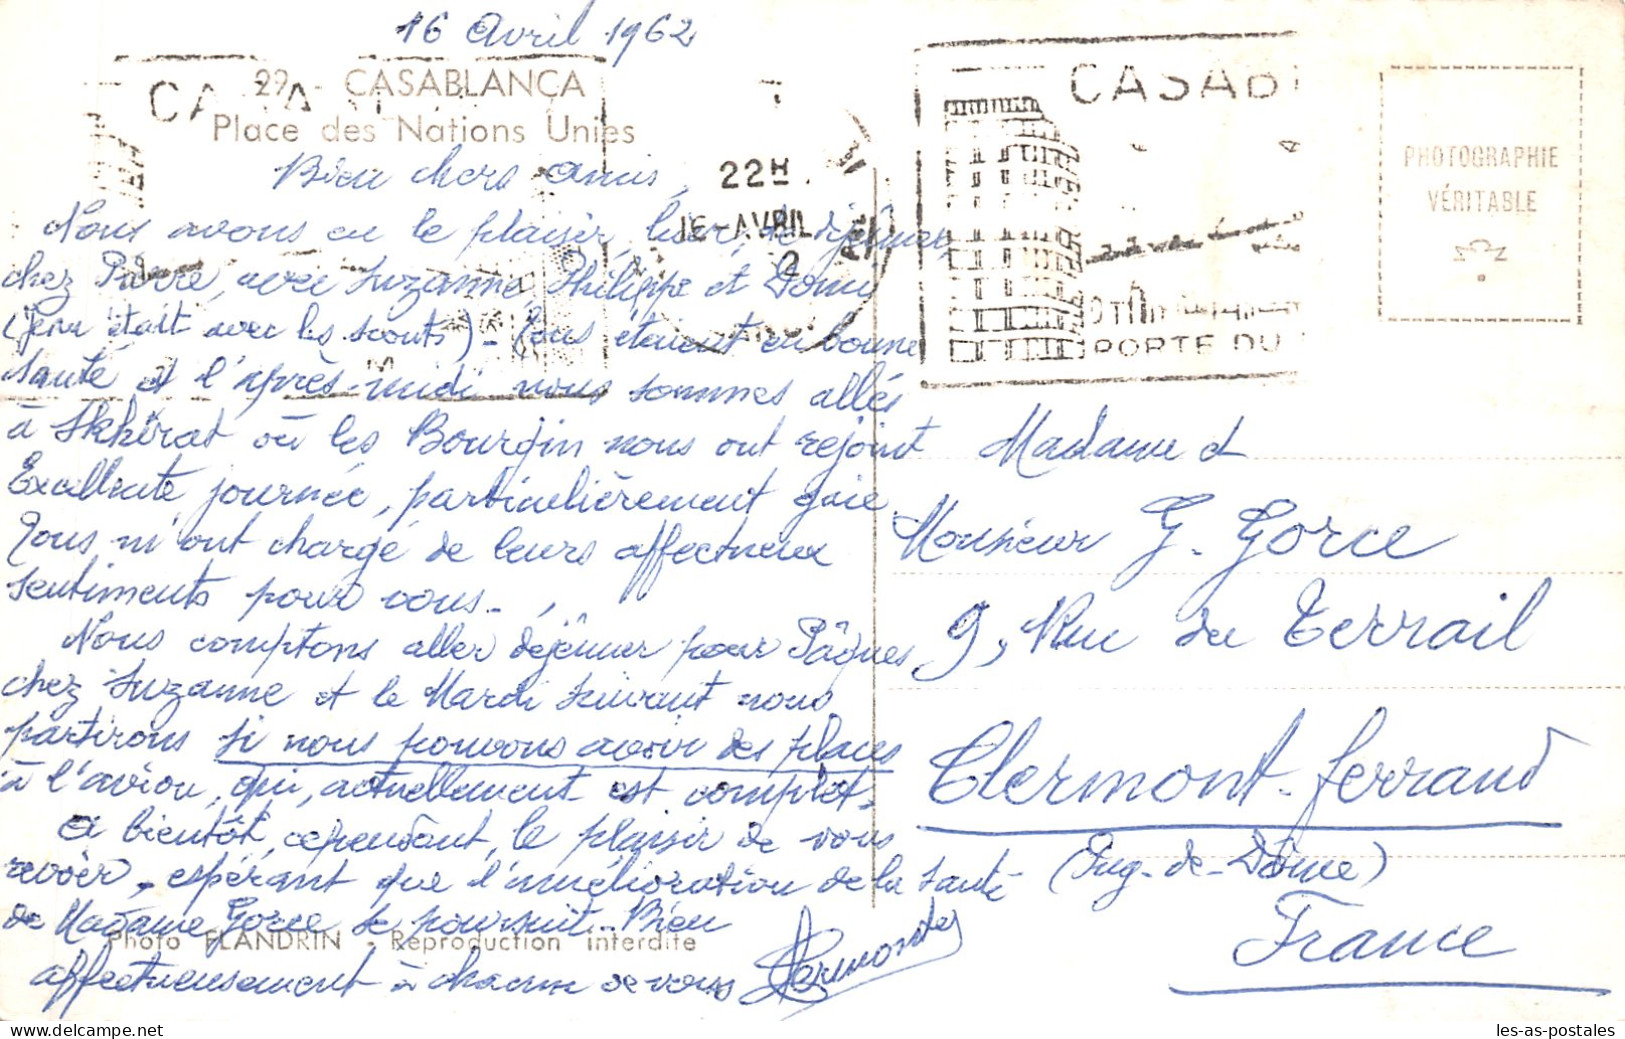 16 Avril 1962
29 - CASABLANCA
Place des Nations Unies
Bien chers amis,
Nous avons eu le plaisir, hier, de déjeuner,
chez Pierre, avec Suzanne, Philippe et Domi
(Jenu était avec les scouts) - Tous étaient en bonne
santé et l'après-midi nous sommes allés
à Skhirat où les Bourgin nous ont rejoint
Excellente journée, particulièrement gaie.
Tous m'ont chargé de leurs affectueux
sentiments pour vous.
Nous comptons aller déjeuner pour Pâques
chez Suzanne et le Mardi suivant nous
partirons si nous pouvons avoir des places
à l'avion, qui, actuellement est complet.
A bientôt, cependant, le plaisir de vous
revoir, espérant que l'amélioration de la santé
de Madame Gorce se poursuit. Bien
affectueusement à chacun de vous
Photo FLANDRIN - Reproduction interdite
22H
16-AVRIL
CASAB
PORTE DU
PHOTOGRAPHIE
VÉRITABLE
Madame et
Monsieur G. Gorce
9, Rue du Terrail
Clermont-Ferrand
(Puy-de-Dôme)
France
les-as-postales